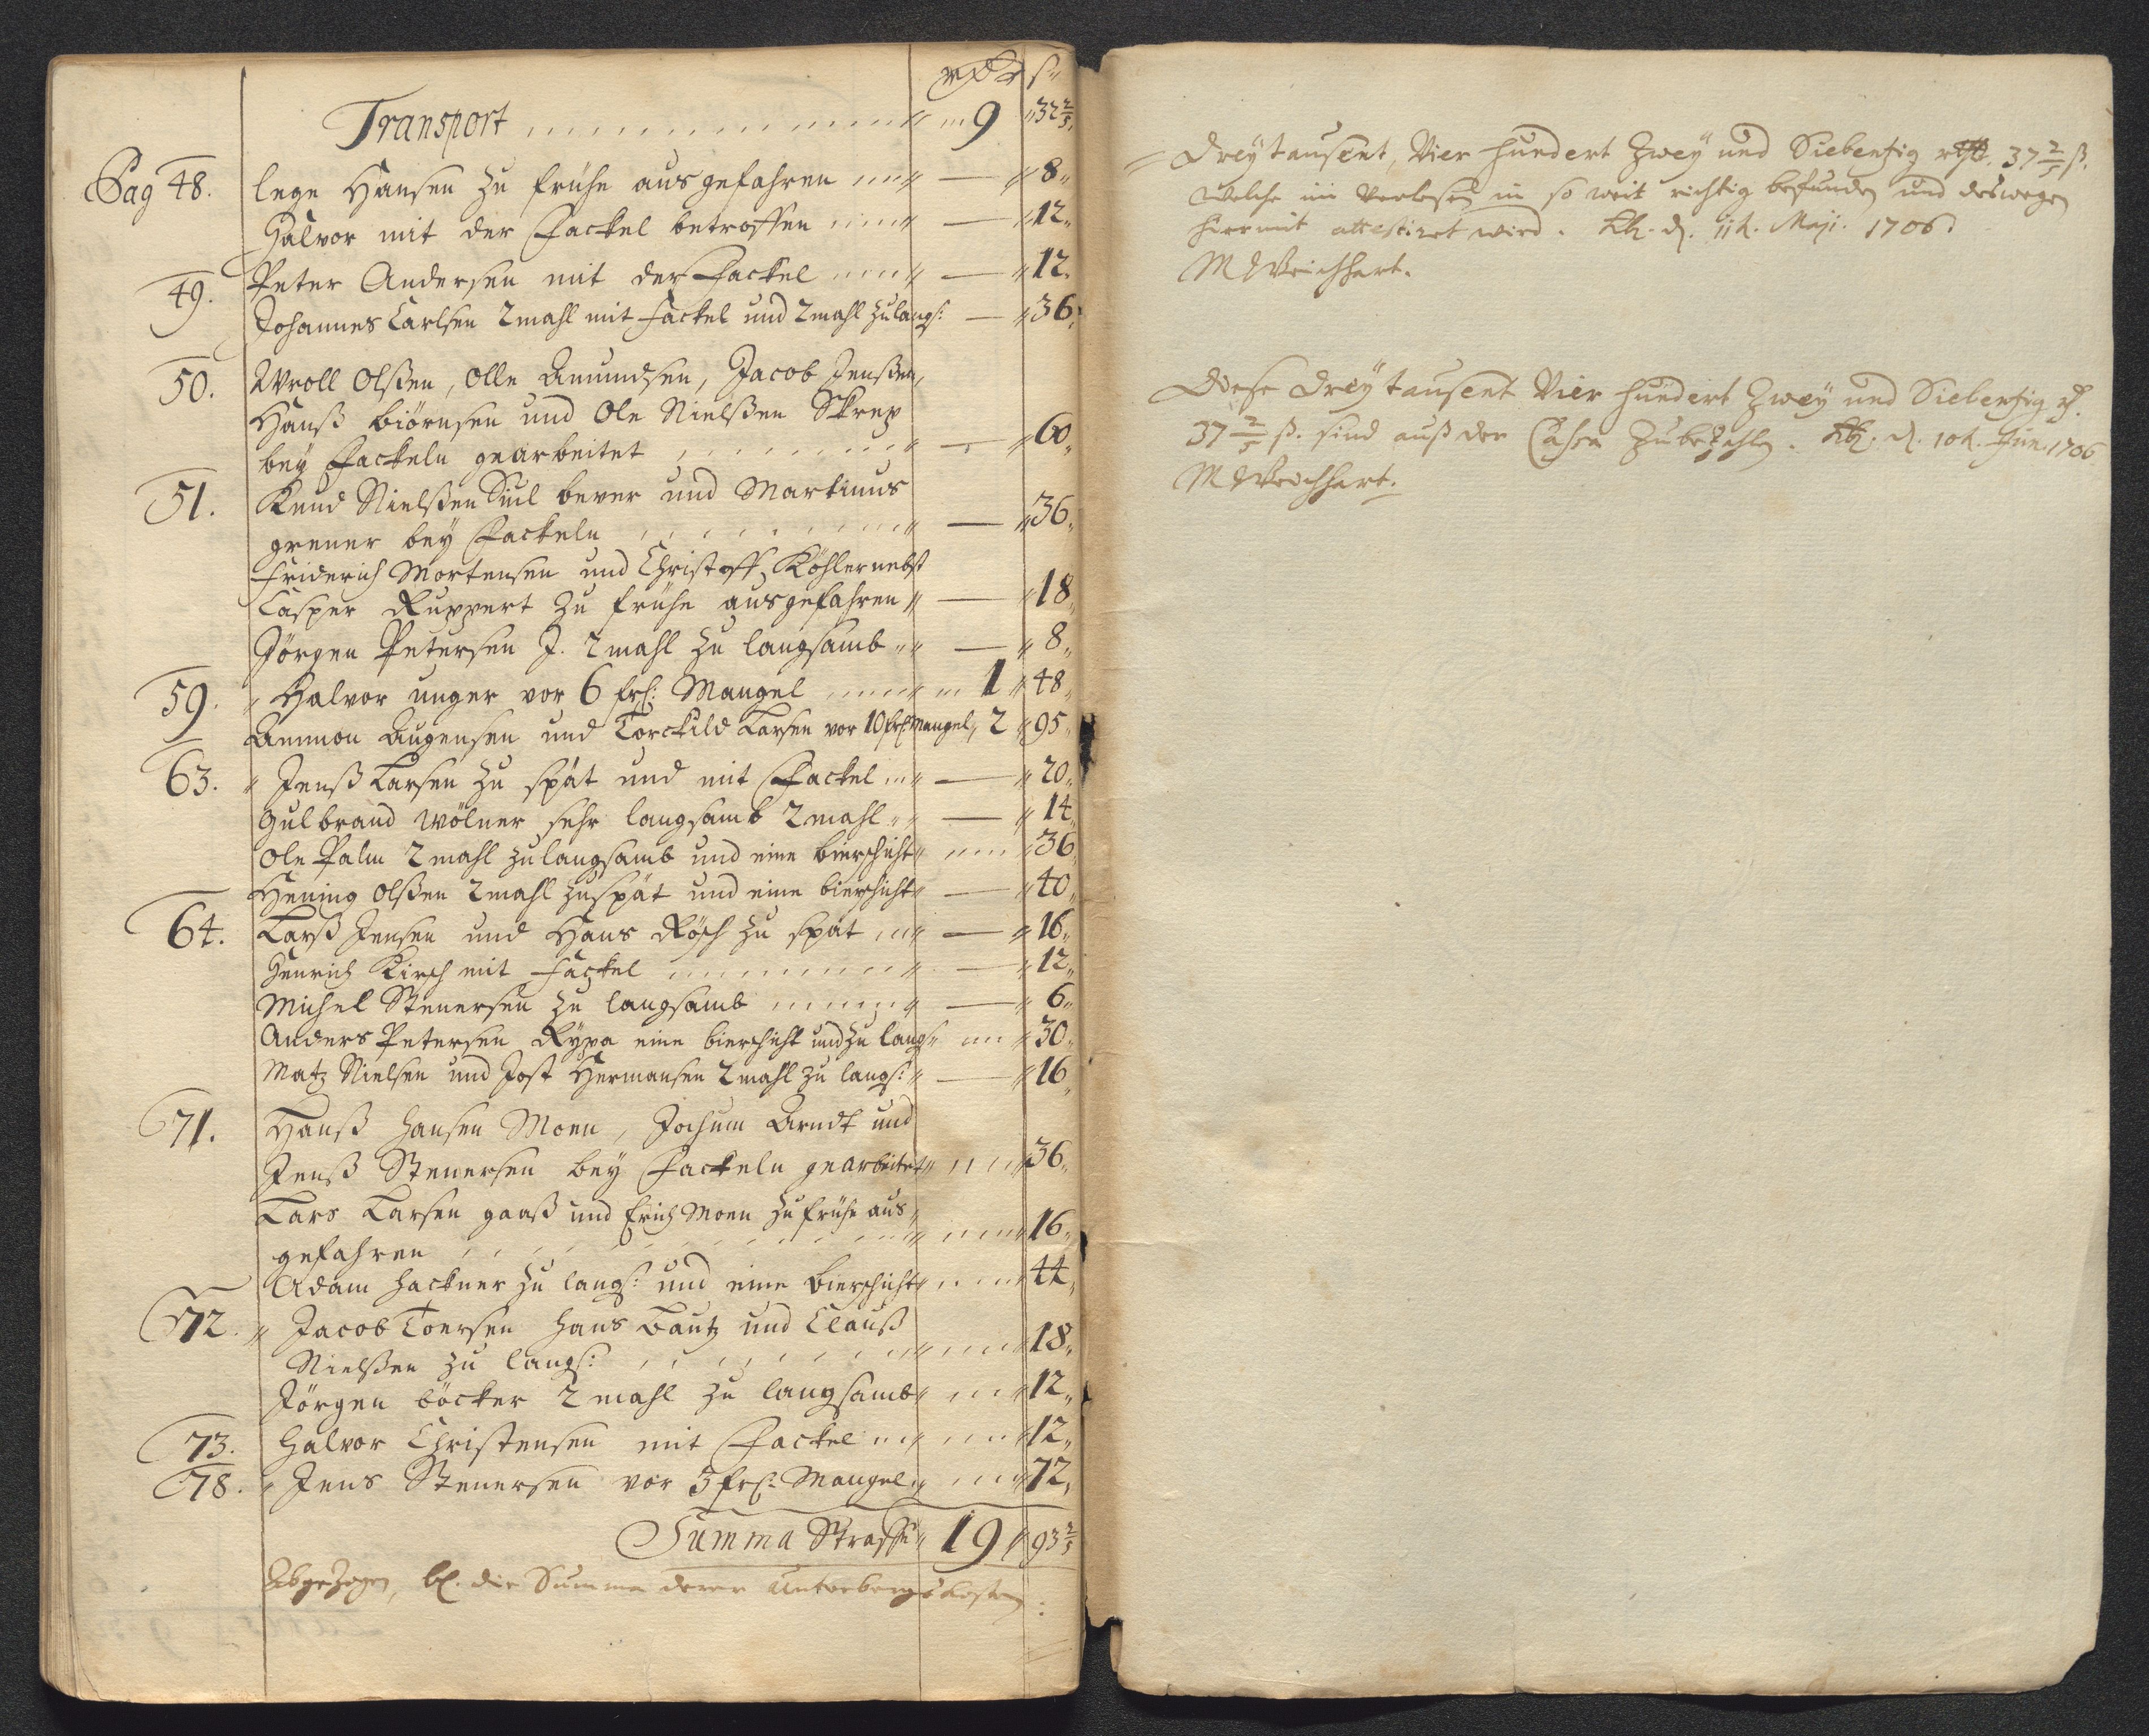 rdr ß
Transport 9 32 2/5
Pag 48. lege Hansen zu frühe ausgefahren — 8
Halvor mit der Fackel betroffen — 12
49. Peter Andersen mit der Fackel — 12
Johannes Carlsen 2 mahl mit Fackel und 2 mahl zu langs: — 36
50. Wroll Olßen, Olle Amundsen, Jacob Jenßen,
Hanß biörnsen und Ole Nielßen Skrep
bey Fackeln gearbeitet — 60
51. Knud Nielßen bever und Martinus
grener bey Fackeln — 36
Friderich Mortensen und Christoff Köhler nebst
Casper Ruppert zu frühe ausgefahren — 18
Jörgen Petersen J. 2 mahl zu langsamb — 8
59. Halvor unger vor 6 frs: Mangel 1 48
Ammon Augensen und Torckild Larsen vor 10 frs: Mangel, 2 95
63. Jenß Larsen zu spät und mit Fackel — 20
Gulbrand Wölner sehr langsamb 2 mahl — 14
Ole Palm 2 mahl zu langsamb und eine bierschicht 36
Hening Olßen 2 mahl zu spät und eine bierschicht — 40
64. Larß Jensen und Hans Rösch zu spät — 16
Henrich Kirsch mit Fackel — 12
Michel Stenersen zu langsamb — 6
Anders Petersen Rypa eine bierschicht und zu langs 30
Matz Nielsen und Jost Hermansen 2 mahl zu langs: — 16
71. Hanß Hansen Moen, Jochum Arndt und
Jenß Stenersen bey Fackeln gearbeitet 36
Lars Larsen gaaß und Erich Moen zu frühe aus
gefahren 16
Adam Hackner zu langs: und eine Bierschicht 44
72. Jacob Toersen Hans Bautz und Clauß
Nielßen zu langs: 18
Jörgen böcker 2 mahl zu langsamb 12
73. Halvor Christensen mit Fackel 12
78. Jens Stenersen vor 3 frs: Mangel 72
Summa Straffe 19 93 2/5
Abgezogen, bl. die Summa derer Unterbergs Kosten:
= Dreytausent, Vier hundert Zwey und Siebenzig rthl. 37 2/5 ß.
Welche im Verlesen in so weit richtig befunden und deswegen
hiermit attestiret wird. Kb. d. 11t. Maji. 1706.
M Weichhart.
Diese Dreytausent Vier hundert Zwey und Siebenzig r.
37 2/5 ß. sind auß der Cassa Zubezahlen. Kb. d. 10t. Jun. 1706
M Weichhart.